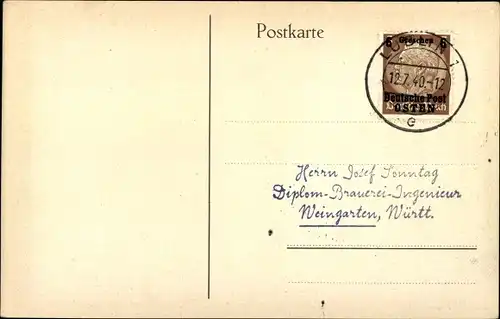 Postkarte
6 Groschen 6
Deutsche Post
OSTEN
12.7.40.-12
e
Herrn Josef Sonntag
Diplom-Brauerei-Ingenieur
Weingarten, Württ.